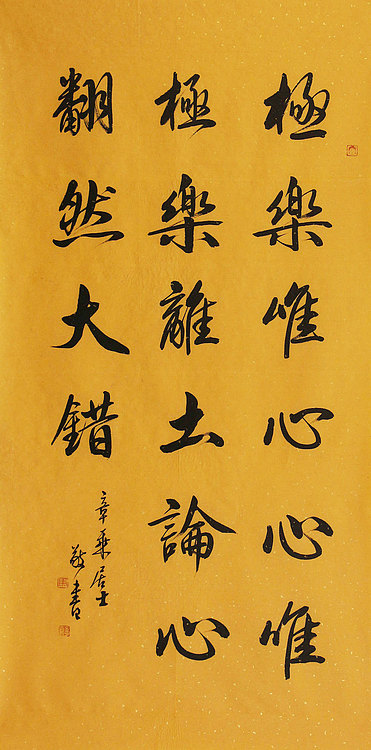 極樂唯心心唯
極樂離土論心
翻然大錯
章居士
敬書